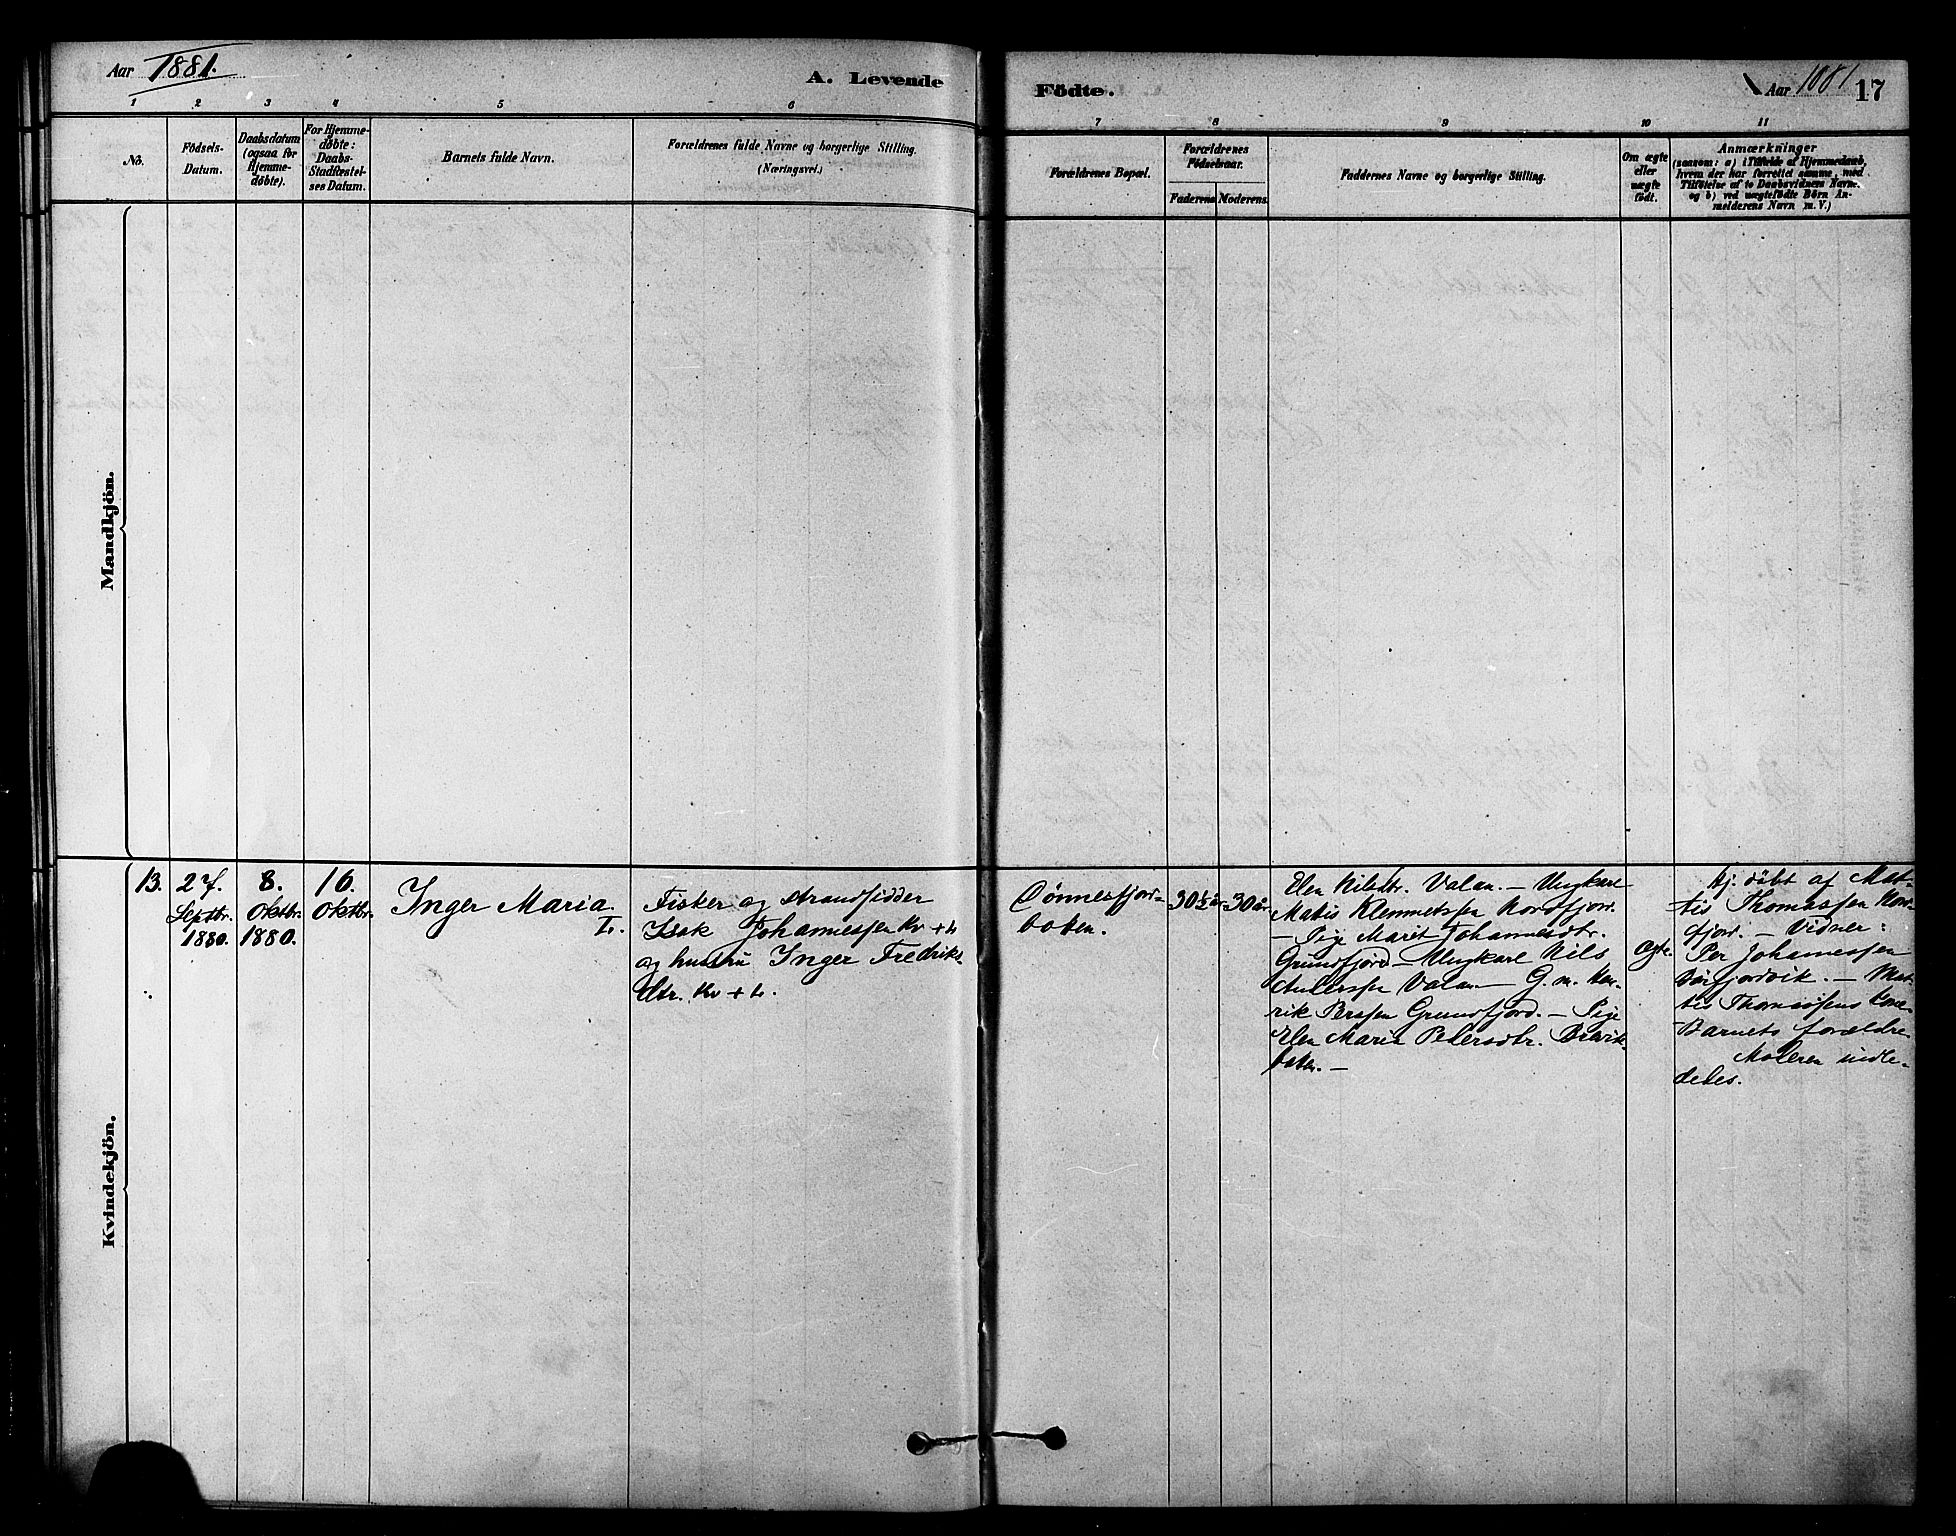 Aar 1881.
A. Levende
Födte.
Aar 1881
17
1 2 3 4 5 6
7 8 9 10 11
No.
Födsels-
Datum.
Daabsdatum
(ogsaa for
Hjemme-
døbte).
For Hjemme-
døbte:
Daabs-
Stadfæstel-
ses Datum.
Barnets fulde Navn.
Forældrenes fulde Navne og borgerlige Stilling.
(Næringsvei.)
Forældrenes Bopæl.
Forældrenes
Födselsaar.
Faderens Moderens.
Faddernes Navne og borgerlige Stilling.
Om ægte
eller
uægte
födt.
Anmærkninger
(saasom: a) i Tilfælde af Hjemmedaab,
hvem der har forrettet samme, med
Tilföielse af to Daabsvidners Navne,
og b) ved uægtefödte Börn An-
melderens Navn m. V.)
Mandkjön.
Kvindekjön.
13.
27.
Septbr.
1880.
8.
Oktbr.
1880.
16.
Oktbr.
Inger Maria
L.
Fisker og strandsidder
Isak Johannessen Kv + L
og hustru Inger Fredriks-
dtr. Kv + L.
Dønnesfjor-
boten.
30½ år
30 år.
Elen Nilsdtr. Valan. — Ungkarl
Matis Klemmetsen Nordfjord.
— Pige Maret Johannesdtr.
Grundfjord — Ungkarl Nils
Anderssen Valan — G. m. Hen-
rik Perssen Grundfjord. — Pige
Elen Maria Pedersdtr. Brevik-
boten. —
ægte.
Hj. døbt af Mat-
tis Thomassen Nor-
fjord. — Vidner:
Per Johannessen
Bárfjordvik. — Mat-
tis Thomassens kone
Barnets forældre
Moderen indle-
dedes.